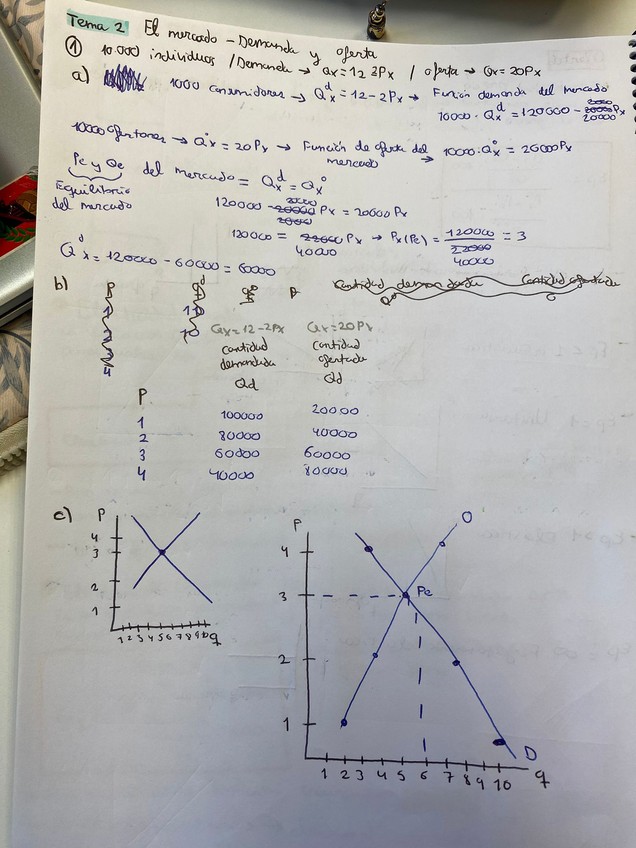 Tema 2 El mercado - Demanda y oferta
① 10.000 individuos / Demanda → Qx=12 2Px / oferta → Qx=20Px
a) 1000 consumidores → Qᵈx = 12-2Px → Función demanda del mercado
10000 · Qᵈx = 120000 - 20000Px
10000 ofertores → Qᵒx = 20Px → Función de oferta del mercado → 10000 · Qᵒx = 20000Px
Pe y Qe del mercado = Qᵈx = Qᵒx
Equilibrio del mercado
120000 - 20000 Px = 20000 Px
120000 = 40000 Px → Px(Pe) = 120000 / 40000 = 3
Qᵈx = 120000 - 60000 = 60000
b)
Qx=12-2Px Qx=20Px
cantidad demandada cantidad ofertada
P Qd Qd
1 100000 20000
2 80000 40000
3 60000 60000
4 40000 80000
c) P
4
3
2
1
1 2 3 4 5 6 7 8 9 10 q
P O
4
3 Pe
2
1
D
1 2 3 4 5 6 7 8 9 10 q